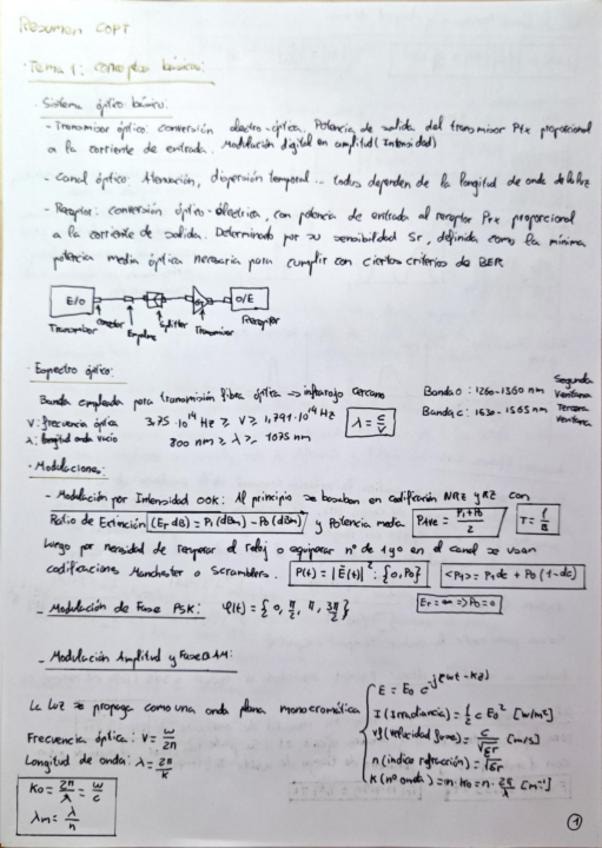 Resumen COPT
· Tema 1: conceptos básicos:
· Sistema óptico básico:
- Transmisor óptico: conversión electro-óptica. Potencia de salida del transmisor Ptx proporcional
a la corriente de entrada. Modulación digital en amplitud (Intensidad)
- Canal óptico: Atenuación, dispersión temporal... todos dependen de la longitud de onda de la luz
- Receptor: conversión óptico-eléctrica, con potencia de entrada al receptor Prx proporcional
a la corriente de salida. Determinado por su sensibilidad Sr, definida como la mínima
potencia media óptica necesaria para cumplir con ciertos criterios de BER
E/O O/E
Transmisor conector Empalme Splitter Transmisor Receptor
· Espectro óptico:
Banda empleada para transmisión fibra óptica => infrarojo cercano
V: frecuencia óptica 3,75 · 10^14 Hz ≥ V ≥ 1,791 · 10^14 Hz λ = c/V
λ: longitud onda vacío 800 nm ≥ λ ≥ 1675 nm
Banda O: 1260-1360 nm Segunda Ventana
Banda C: 1530-1565 nm Tercera Ventana
· Modulaciones:
- Modulación por Intensidad OOK: Al principio se basaban en codificación NRZ y RZ con
Ratio de Extinción (Er dB) = P1 (dBm) - P0 (dBm) y Potencia media PAve = (P1+P0)/2 T = 1/B
Luego por necesidad de recuperar el reloj o equiparar nº de 1 y 0 en el canal se usan
codificaciones Manchester o Scramblers. P(t) = |E(t)|^2: {0, P0} <P1> = P1 dc + P0 (1-dc)
- Modulación de Fase PSK: φ(t) = {0, π/2, π, 3π/2} Er = ∞ => P0 = 0
- Modulación Amplitud y Fase QAM:
La luz se propaga como una onda plana monocromática
E = E0 e^-j(wt-kz)
I (Irradiancia) = 1/2 c E0^2 [W/m²]
vf (velocidad fase) = c/√εr [m/s]
n (indice refracción) = √εr
K (nº onda) = n · K0 = n · 2π/λ [m^-1]
Frecuencia óptica: V = w/2π
Longitud de onda: λ = 2π/K
K0 = 2π/λ = w/c
λm = λ/n
1